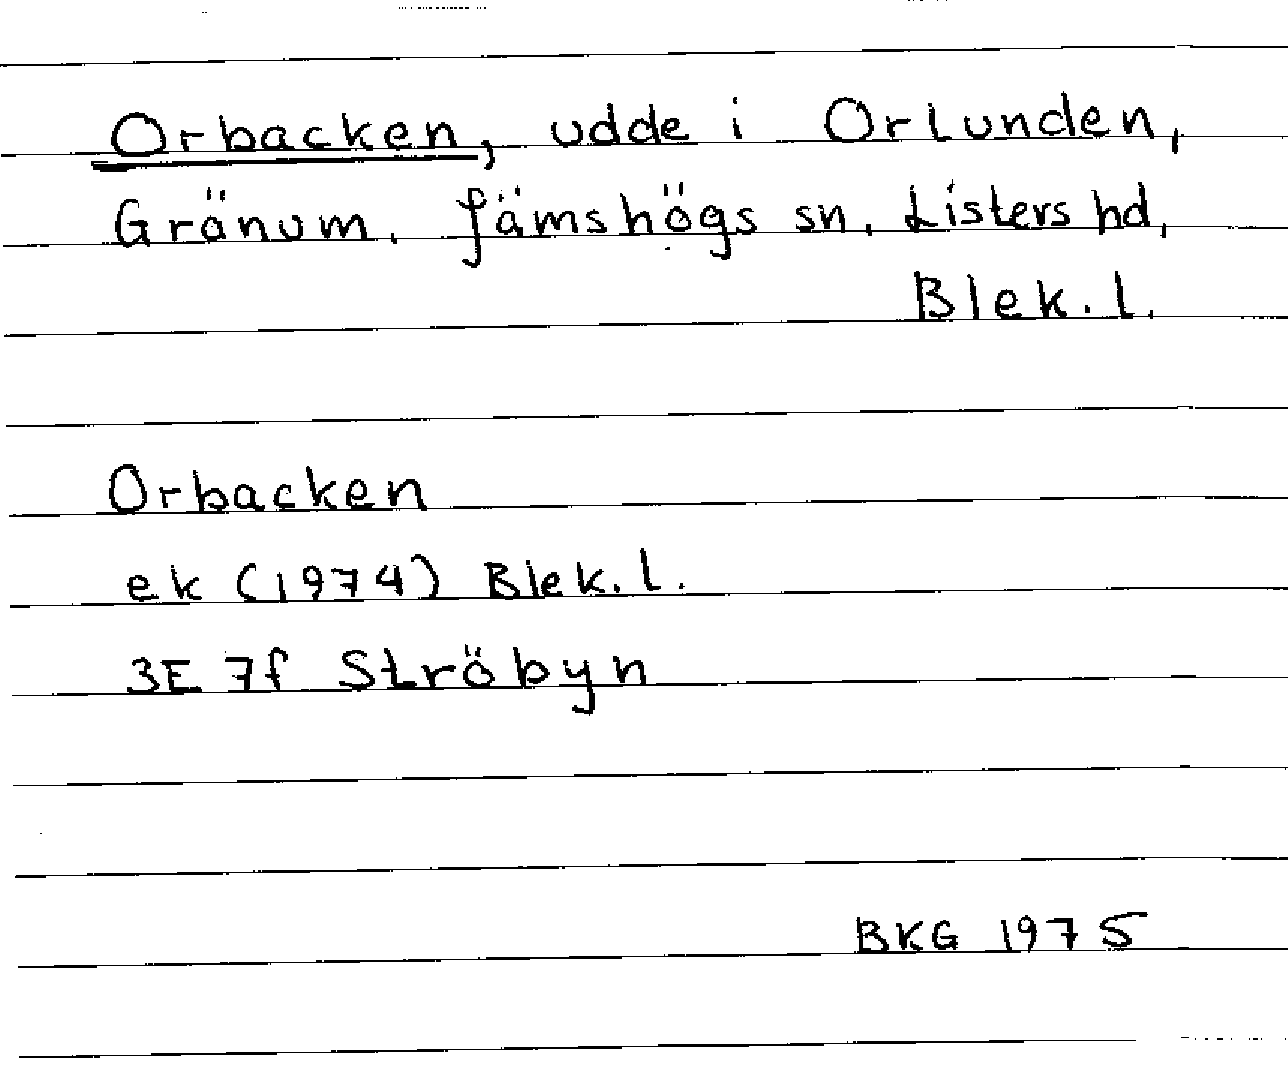 Orbacken, udde i Orlunden,
Gränum. Jämshögs sn, Listers hd,
Blek. l.
Orbacken
ek (1974) Blek. l.
3E 7f Ströbyn
BKG 1975